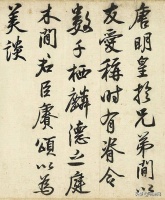 唐明皇於兄弟間以
友愛稱時有脊令
數千栖麟德之庭
木間君臣賡頌以為
美談